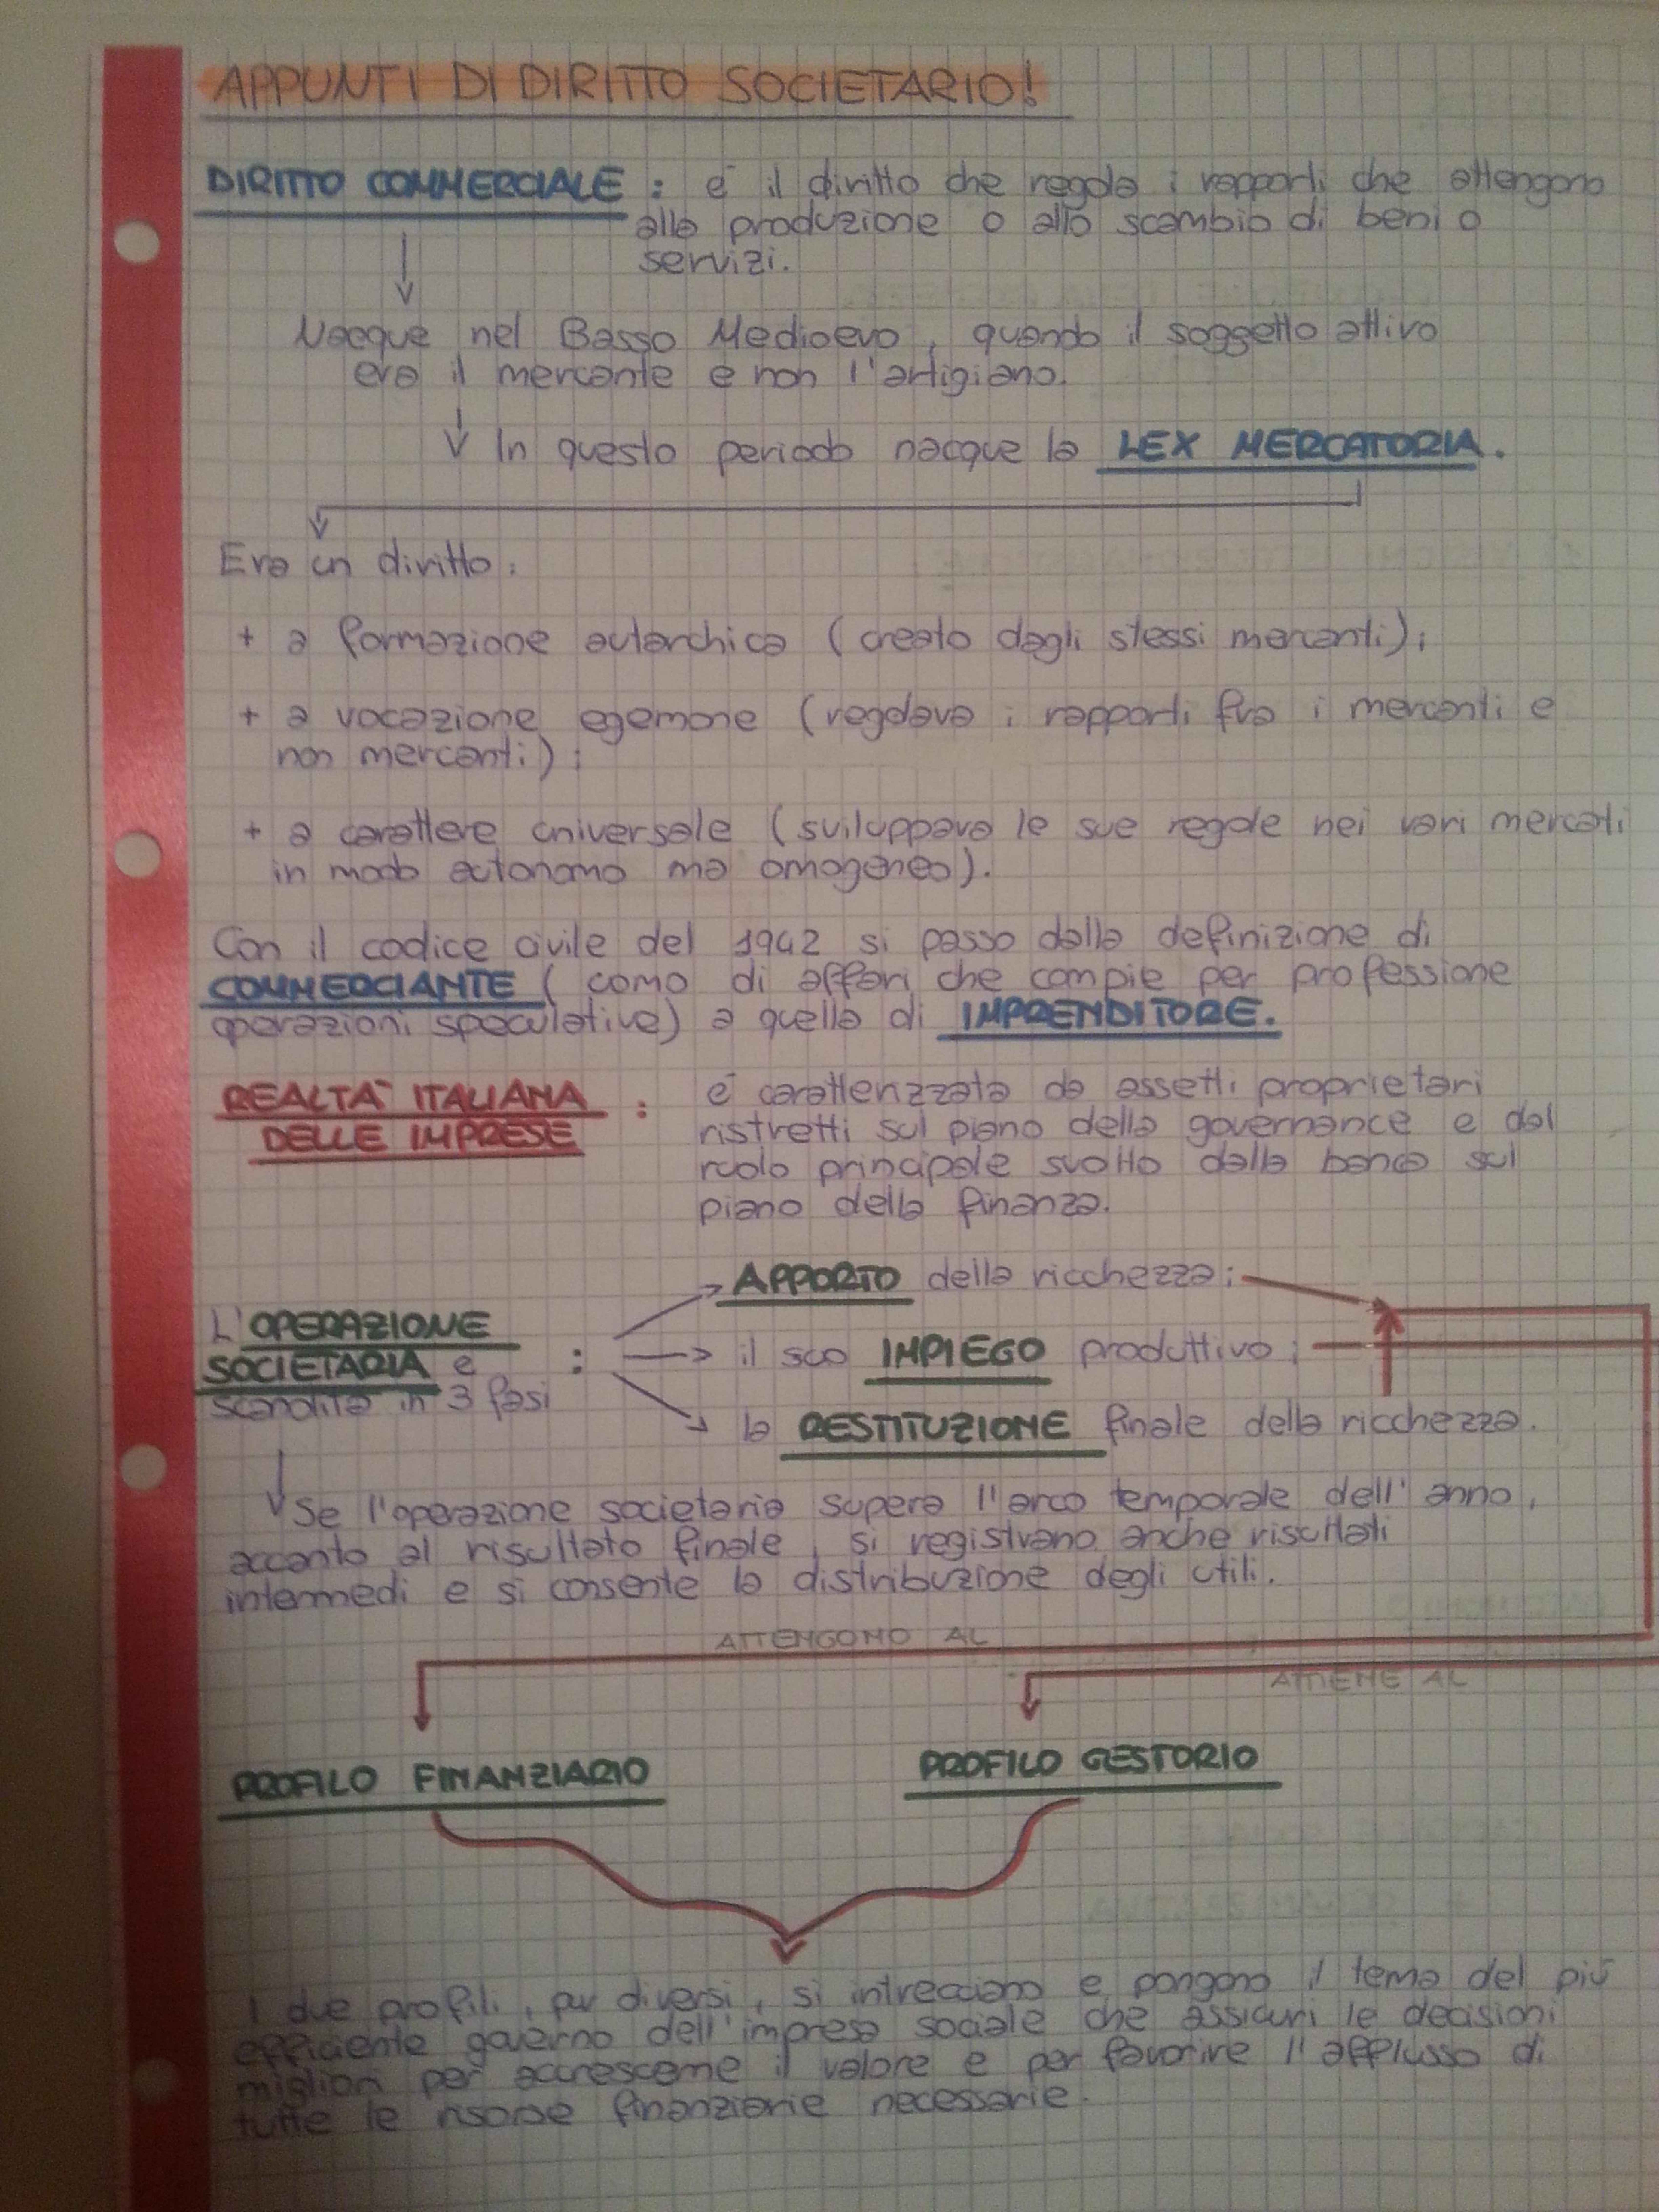 APPUNTI DI DIRITTO SOCIETARIO!
DIRITTO COMMERCIALE : è il diritto che regola i rapporti che attengono
alla produzione o allo scambio di beni o
servizi.
Nacque nel Basso Medioevo, quando il soggetto attivo
era il mercante e non l'artigiano.
In questo periodo nacque la LEX MERCATORIA.
Era un diritto:
+ a formazione autarchica (creato dagli stessi mercanti);
+ a vocazione egemone (regolava i rapporti fra i mercanti e
non mercanti);
+ a carattere universale (sviluppava le sue regole nei vari mercati
in modo autonomo ma omogeneo).
Con il codice civile del 1942 si passo dalla definizione di
COMMERCIANTE ( como di affari che compie per professione
operazioni speculative) a quella di IMPRENDITORE.
REALTA' ITALIANA : è caratterizzata da assetti proprietari
DELLE IMPRESE ristretti sul piano della governance e dal
ruolo principale svolto dalla banca sul
piano della finanza.
APPORTO della ricchezza;
L'OPERAZIONE
SOCIETARIA è : il suo IMPIEGO produttivo;
scandita in 3 fasi
la RESTITUZIONE finale della ricchezza.
Se l'operazione societaria supera l'arco temporale dell'anno,
accanto al risultato finale, si registrano anche risultati
intermedi e si consente la distribuzione degli utili.
ATTENGONO AL
ATTIENE AL
PROFILO FINANZIARIO PROFILO GESTORIO
I due profili, pur diversi, si intrecciano e pongono il tema del più
efficiente governo dell'impresa sociale che assicuri le decisioni
migliori per accrescerne il valore e per favorire l'afflusso di
tutte le risorse finanziarie necessarie.